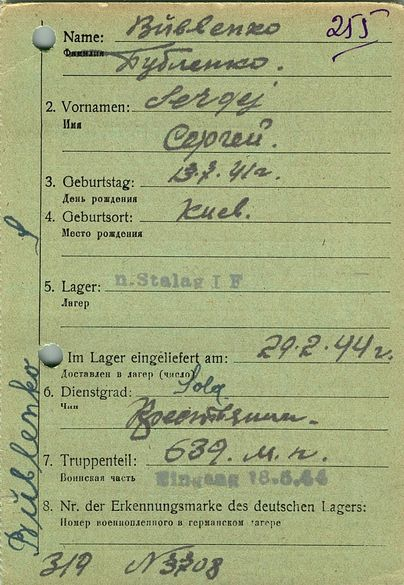 255
Name: Büblenko
Фамилия Бубленко.
2. Vornamen: Sergej
Имя
Сергей.
3. Geburtstag: 13.7.41г.
День рождения
4. Geburtsort: Киев.
Место рождения
5. Lager: n.Stalag I F
Лагер
Im Lager eingeliefert am: 29.2.44 г.
Доставлен в лагер (число)
6. Dienstgrad: Sold
Чин
7. Truppenteil: 639. м.п.
Воинская часть Eingang 18.5.44
8. Nr. der Erkennungsmarke des deutschen Lagers:
Номер военнопленного в германском лагере
319 N 3708
Büblenko S